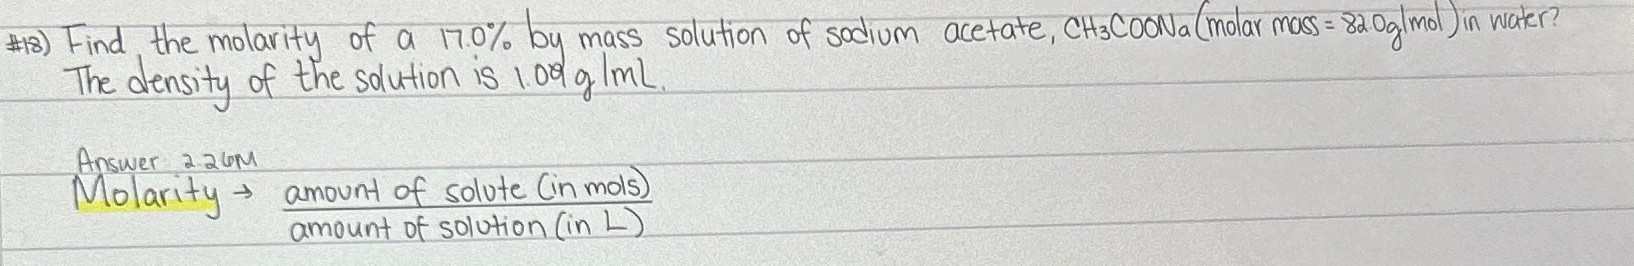 #18) Find the molarity of a 17.0% by mass solution of sodium acetate, CH3COONa (molar mass = 82.0g/mol) in water?
The density of the solution is 1.09 g/mL.
Answer 2.26M
Molarity → amount of solute (in mols)
amount of solution (in L)